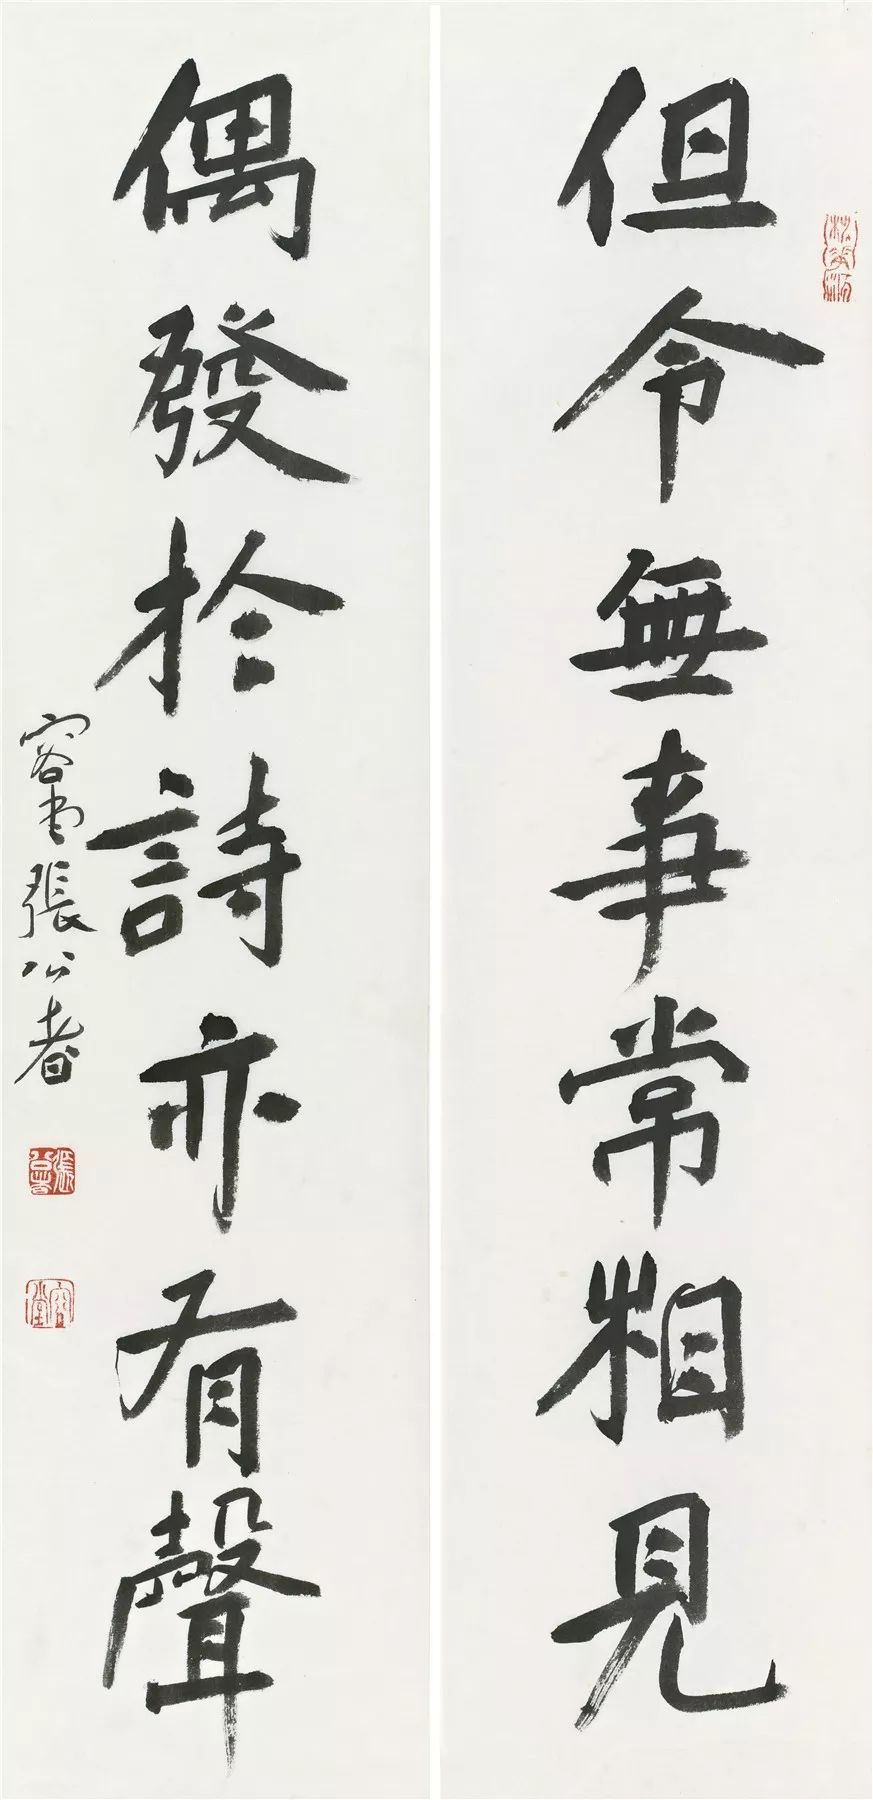 但令無事常相見
偶發於詩亦有聲
容堂張公者